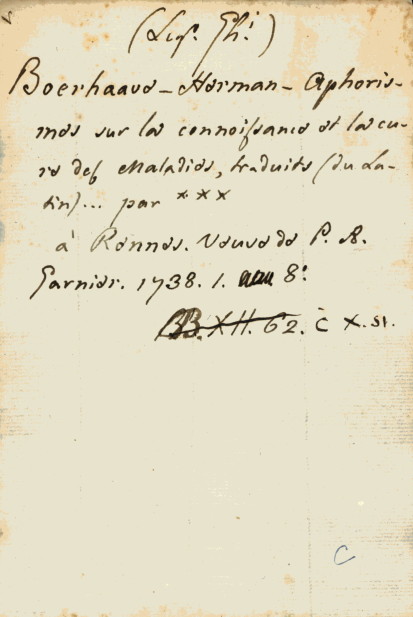 (Lis. Gh.)
Boerhaave - Herman - Aphoris-
mes sur la connoissance et la cu-
re des Maladies, traduits (du La-
tin)... par ***
à Rennes. Veuve de P. A.
Garnier. 1738. 1. 8.
BB. XII. 62. C X. st.
C